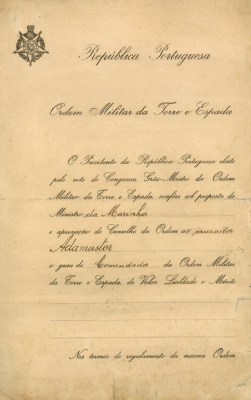 República Portuguesa
Ordem Militar da Torre e Espada
O Presidente da República Portuguesa eleito
pelo voto do Congresso, Grão-Mestre da Ordem
Militar da Torre e Espada, confere sob proposta do
Ministro da Marinha
e aprovação do Conselho da Ordem ao cruzador
Adamastor
o grau de Comendador da Ordem Militar
da Torre e Espada, do Valor, Lealdade e Mérito
Nos termos do regulamento da mesma Ordem